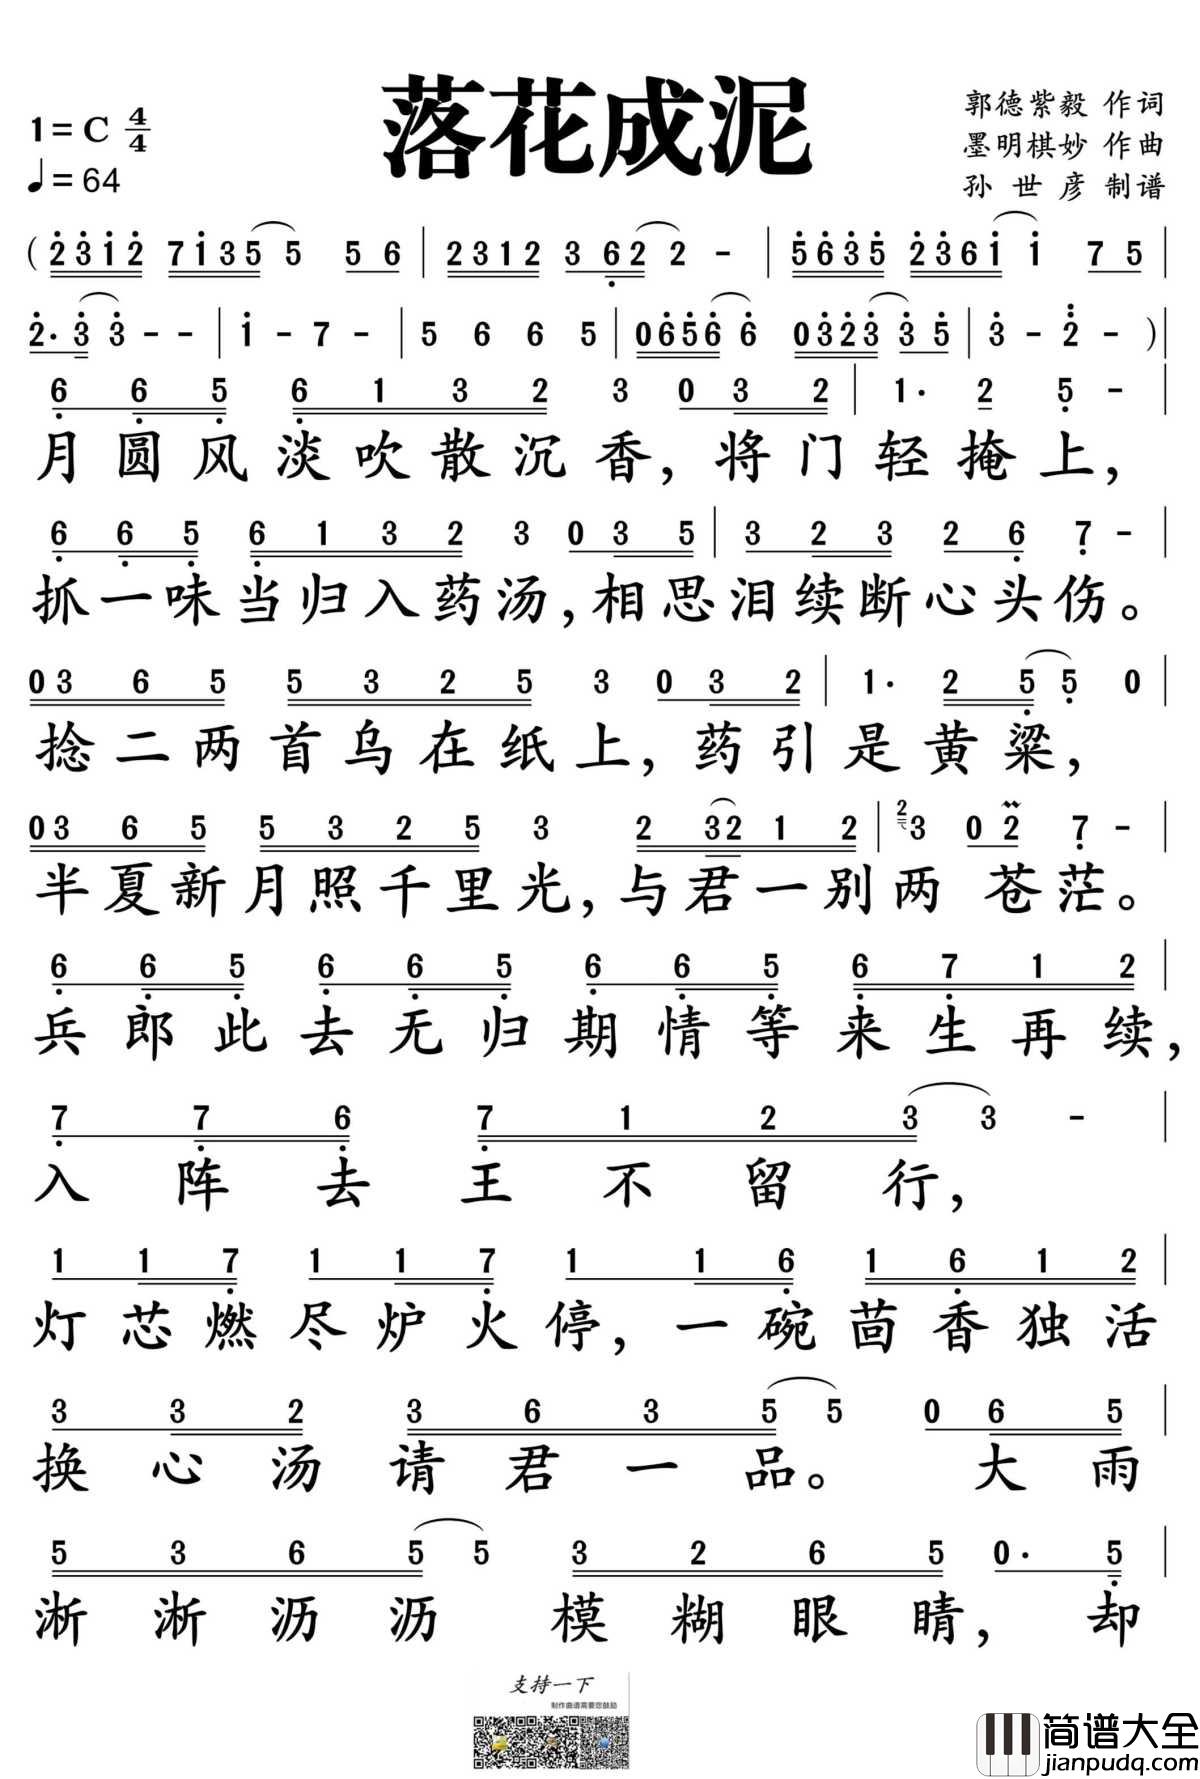 落花成泥
1=C 4/4
♩=64
郭德紫毅 作词
墨明棋妙 作曲
孙世彦 制谱
( 2 3 1 2 7 1 3 5 5 5 6 | 2 3 1 2 3 6 2 2 - | 5 6 3 5 2 3 6 1 1 7 5 |
2· 3 3 - - | 1 - 7 - | 5 6 6 5 | 0 6 5 6 6 0 3 2 3 3 5 | 3 - 2 - ) |
6 6 5 6 1 3 2 3 0 3 2 | 1· 2 5 - |
月圆风淡吹散沉香,将门轻掩上,
6 6 5 6 1 3 2 3 0 3 5 | 3 2 3 2 6 7 - |
抓一味当归入药汤,相思泪续断心头伤。
0 3 6 5 5 3 2 5 3 0 3 2 | 1· 2 5 5 0 |
捻二两首乌在纸上,药引是黄粱,
0 3 6 5 5 3 2 5 3 2 3 2 1 2 | 2 3 0 2 7 - |
半夏新月照千里光,与君一别两苍茫。
6 6 5 6 6 5 6 6 5 6 7 1 2 |
兵郎此去无归期情等来生再续,
7 7 6 7 1 2 3 3 - |
入阵去王不留行,
1 1 7 1 1 7 1 1 6 1 6 1 2 |
灯芯燃尽炉火停,一碗茴香独活
3 3 2 3 6 3 5 5 0 6 5 |
换心汤请君一品。大雨
5 3 6 5 5 3 2 6 5 0· 5 |
淅淅沥沥模糊眼睛,却
支持一下
制作曲谱需要您鼓励
简谱大全
jianpudq.com